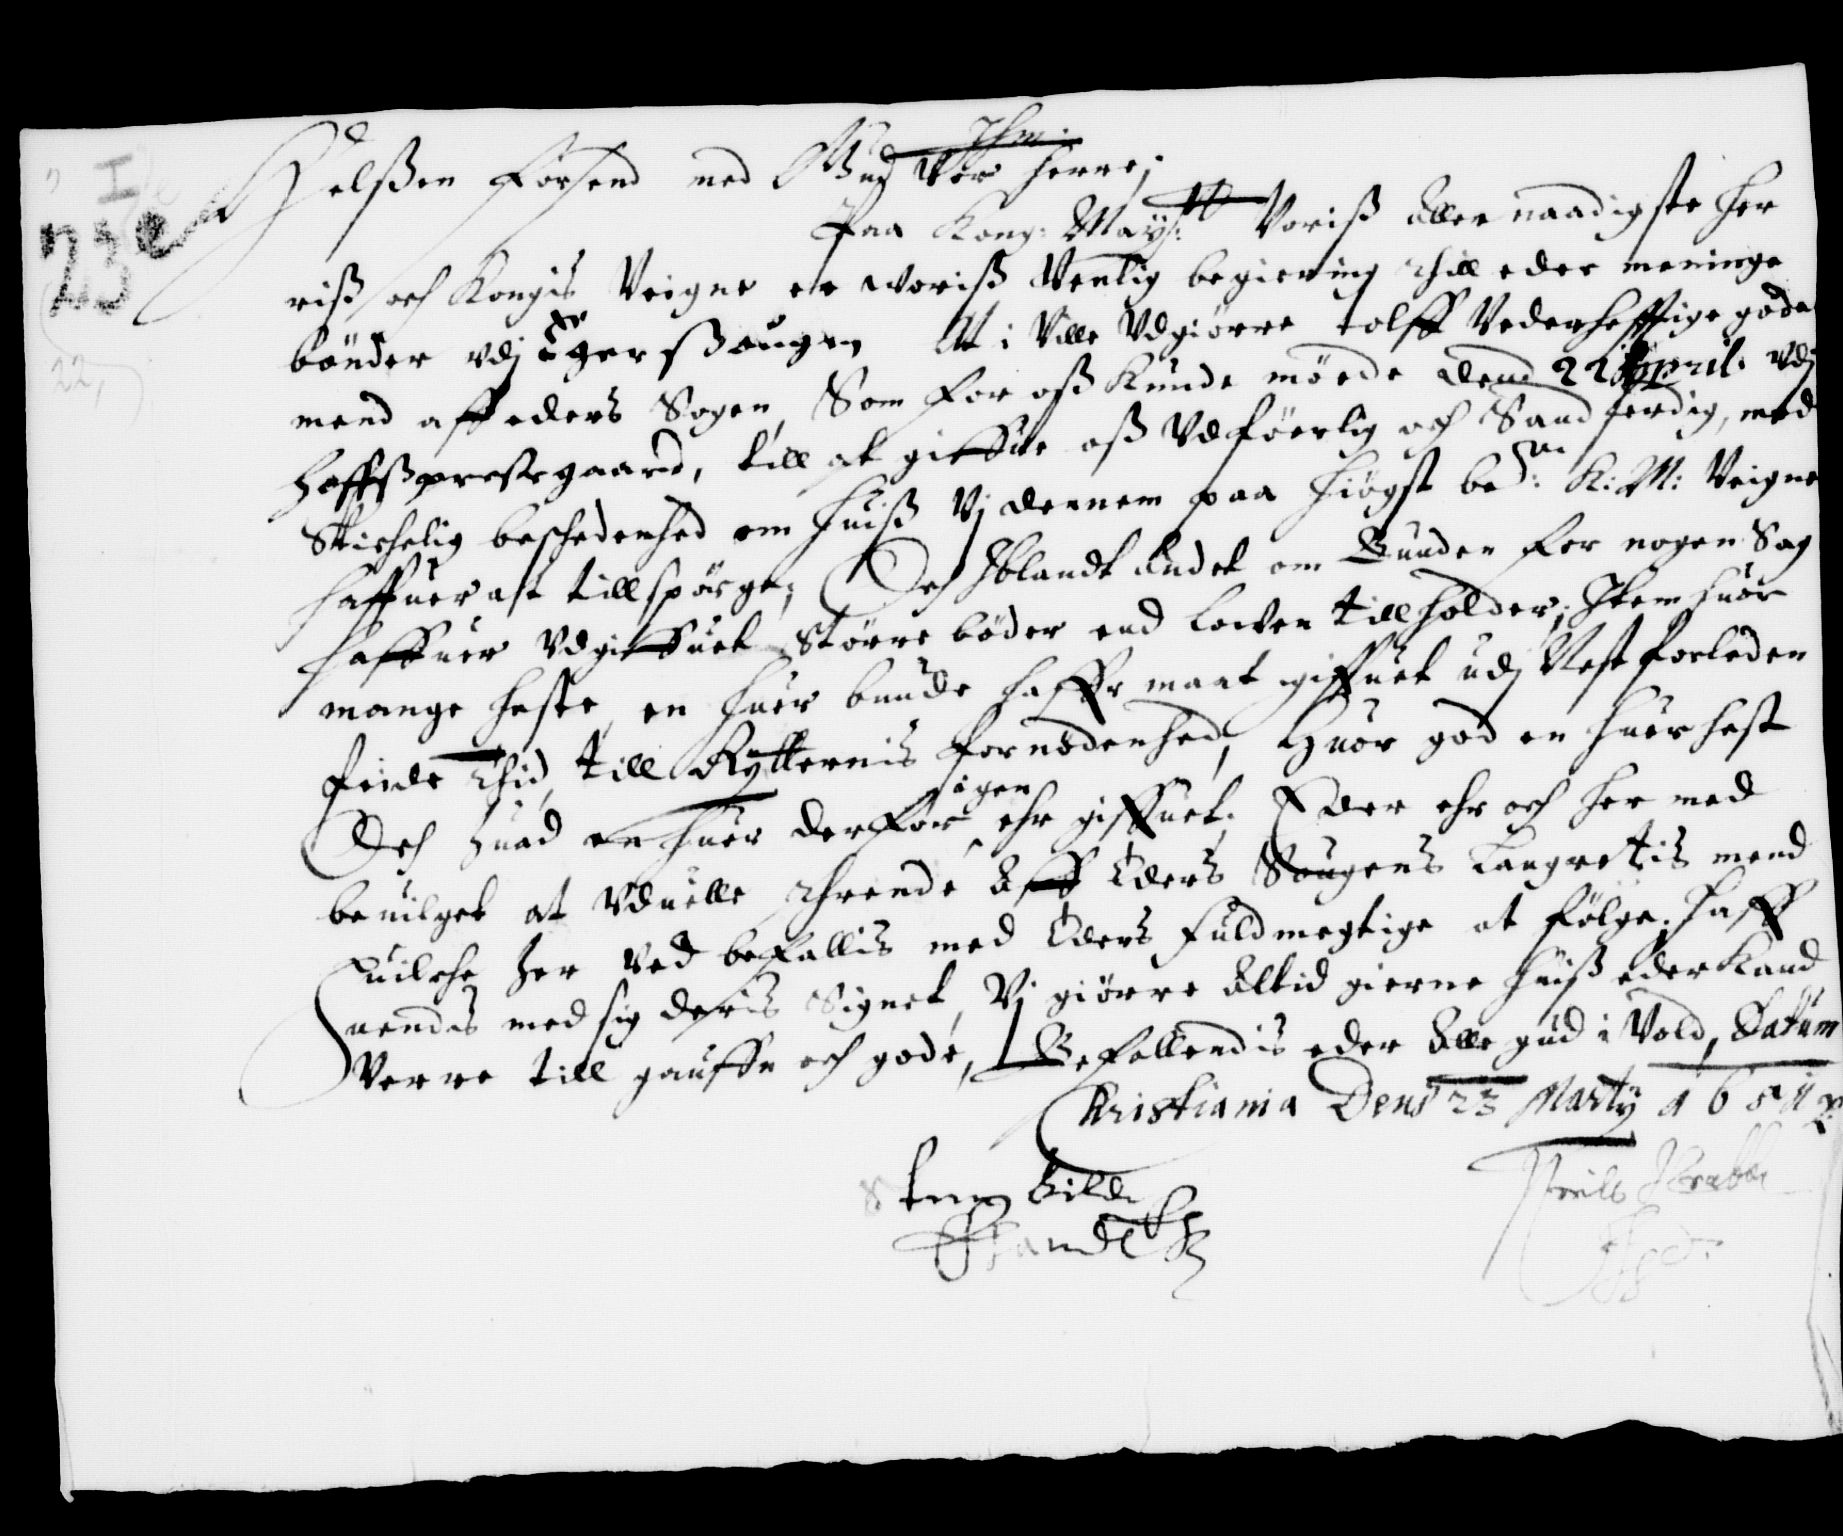 I
23e
22,
Helßen forsend med Gud Vor herre;
Paa Kong: May: tt Voriß aller naadigste Her
riß och Kongis Veigne er woriß Venlig begiering thill eder meninge
bönder vdj Egerßougen At i Ville Vdgiörre tolff Vederhefftige gode
mend aff eders Sogen, Som for oß Kunde möede dend 22 April: vdj
hoffßprestegaard, till at giffue oß Vdföerlig och Sandferdig, med
Skichelig beschedenhed om huiß Vj dennem paa hiögst be: te K: M: Veigne
haffuer at tillspörge; Och Jblandt Andet om Bunden for nogen Sag
haffuer Vdgiffuet Större böder end lowen tillholder; Jtem huor
mange heste, en huer bunde haffr maat giffuet udj Nest forleden
feide thid, till Rytternis fornödenhed, Huor god en huer hest
Och huad en huer derfor igen ehr giffuet. Eder ehr och her med
beuilget at Vduelle thrende Aff Eders Sougens Laugrettis mend
huilche her Ved befallis med Eders fuldmegtige at fölge, haff
uendis med sig deris Signet, Vj giörre Altid gierne huiß eder Kand
Verre till gauffn och gode, Befallendis eder Alle gud i Vold, Datum
Kristiania Dend 23 Marty 1651
Steen Bilde
Niels Krabbe